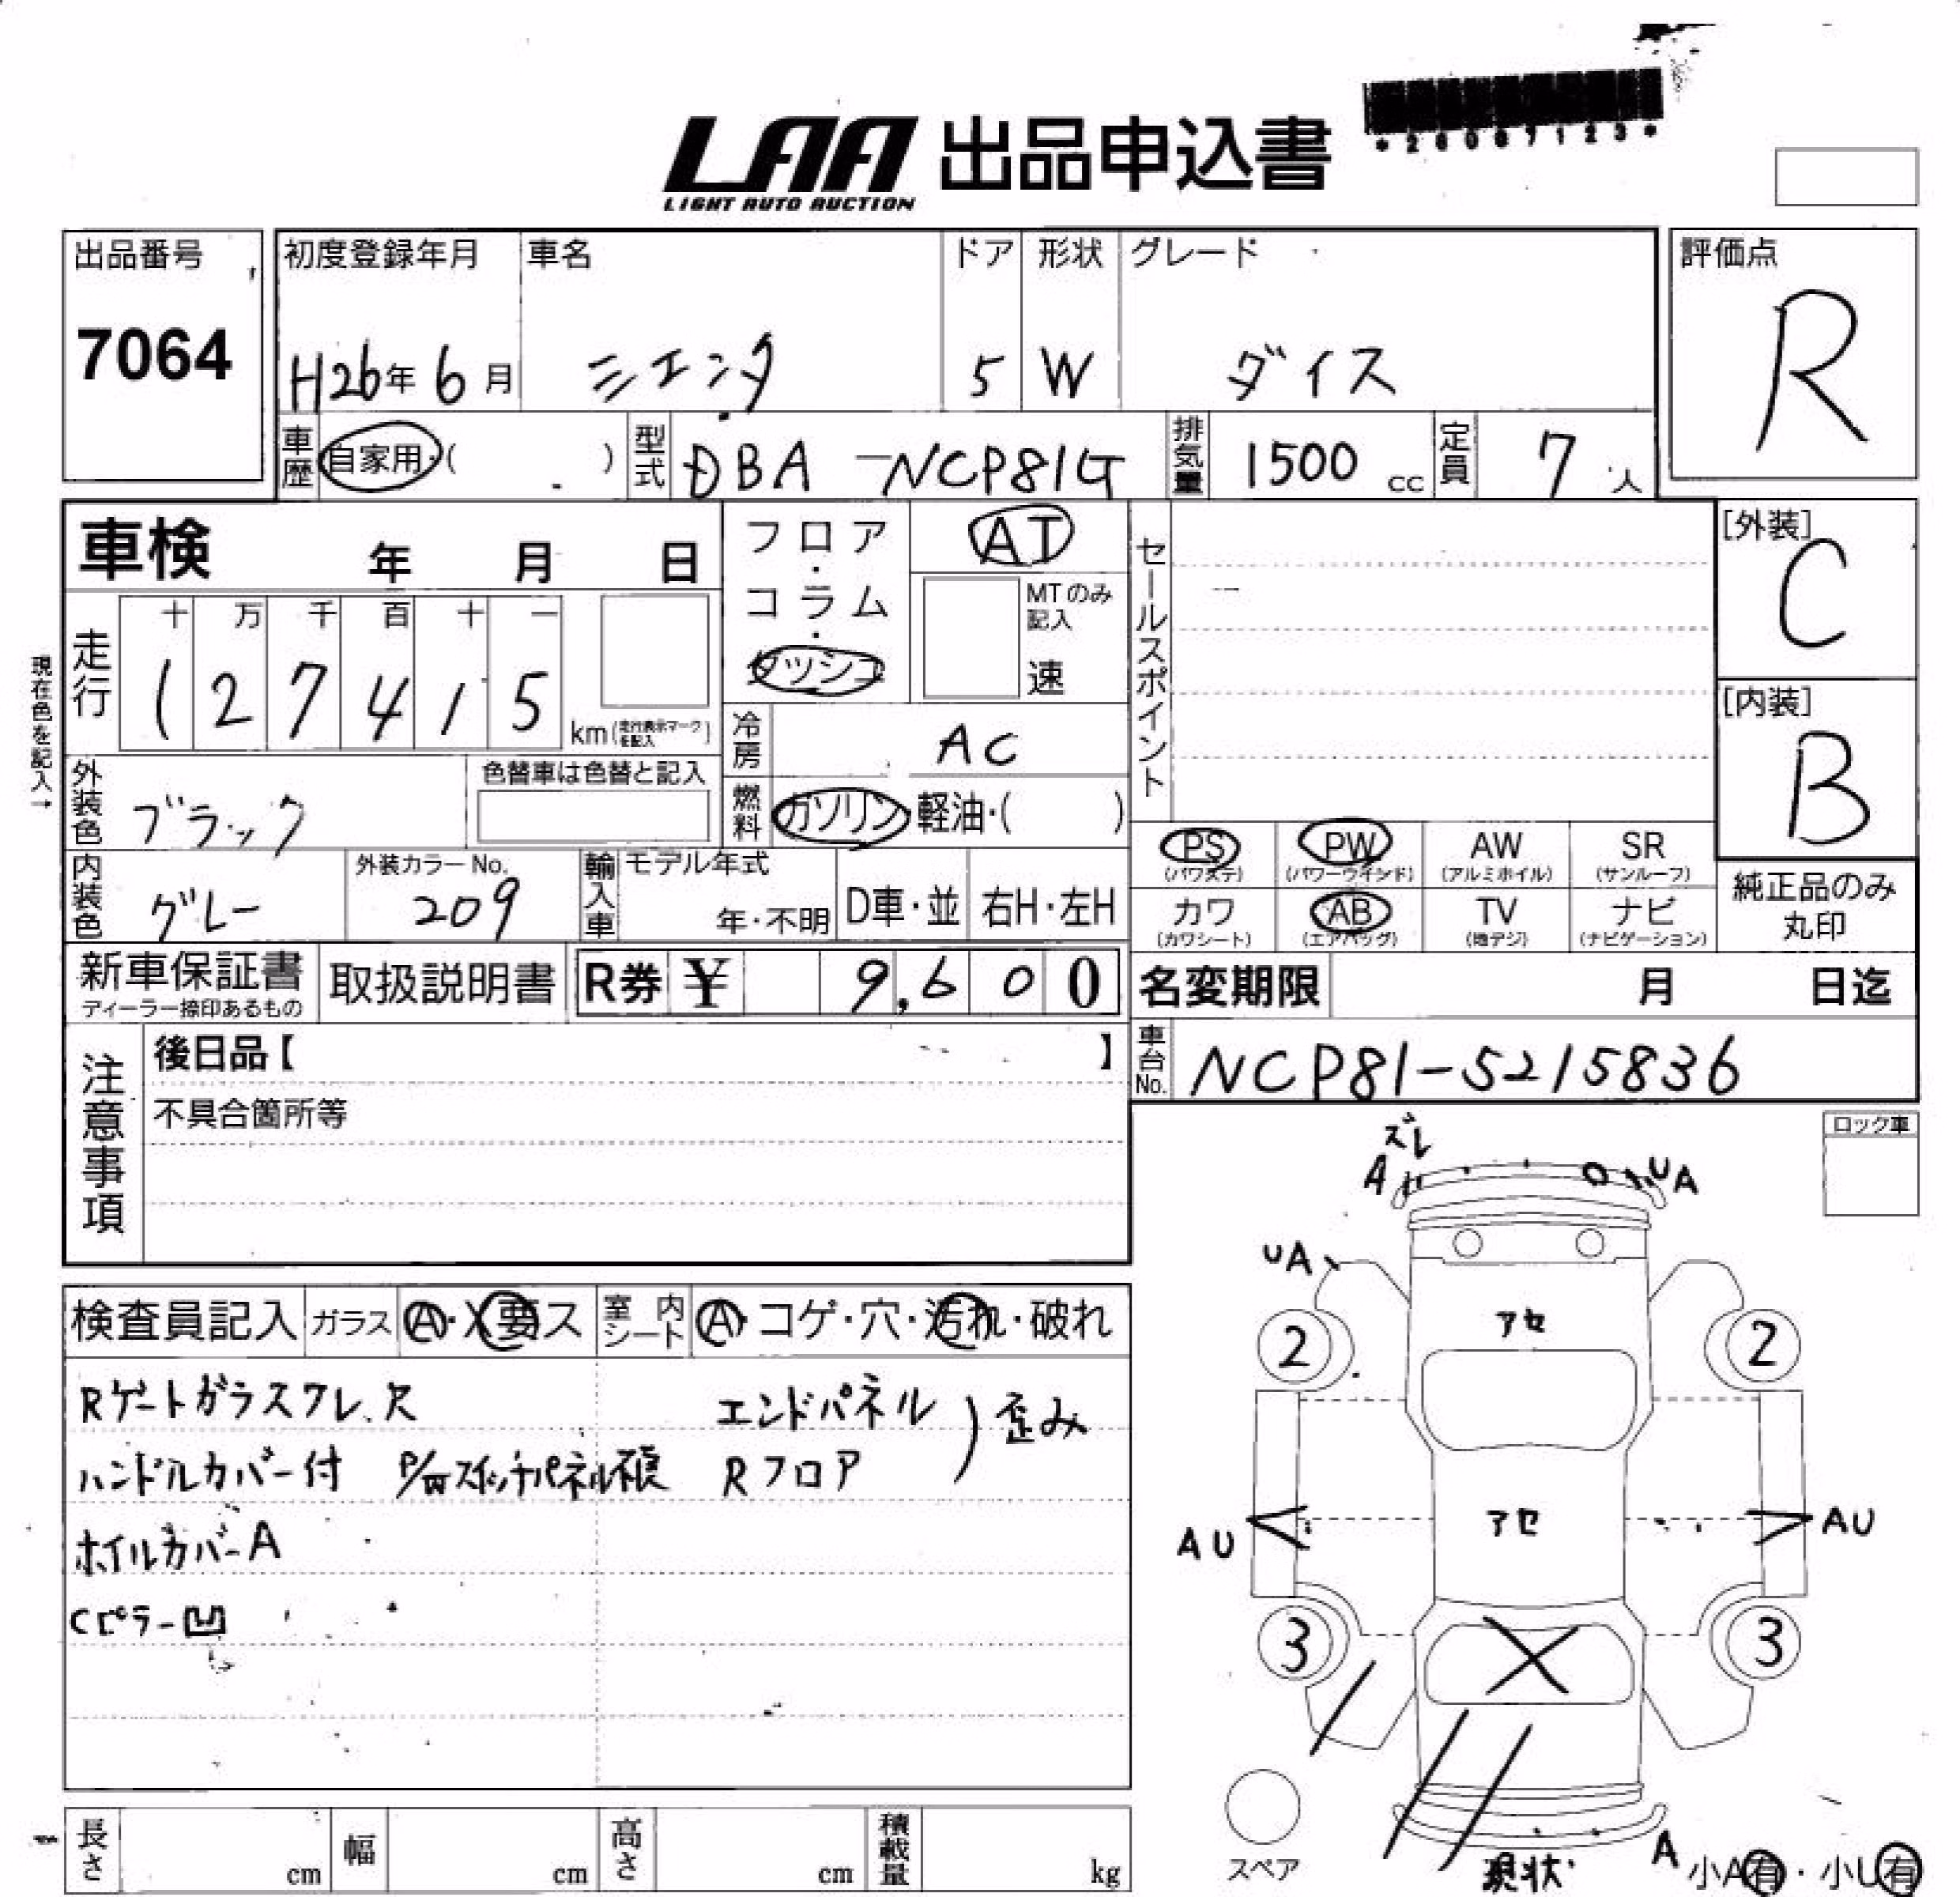 *26087123*
LAA 出品申込書
LIGHT AUTO AUCTION
出品番号 初度登録年月 車名 ドア 形状 グレード 評価点
7064 H26年 6月 シエンタ 5 W ダイス R
車歴 自家用・( ) 型式 DBA-NCP81G 排気量 1500 cc 定員 7 人
車検 年 月 日 フロア・コラム・ダッシュ AT セールスポイント [外装]
C
MTのみ記入 速
走行 十 万 千 百 十 一
1 2 7 4 1 5 km(走行表示マークを記入)
現在色を記入→
冷房 AC [内装]
B
外装色 ブラック 色替車は色替と記入 燃料 ガソリン 軽油・( )
PS PW AW SR
(パワステ) (パワーウインド) (アルミホイル) (サンルーフ)
内装色 グレー 外装カラーNo. 209 輸入車 モデル年式 年・不明 D車・並 右H・左H
カワ AB TV ナビ 純正品のみ
(カワシート) (エアバッグ) (地デジ) (ナビゲーション) 丸印
新車保証書 取扱説明書 R券 ¥ 9,600 名変期限 月 日迄
ディーラー捺印あるもの
注意事項 後日品【 】 車台No. NCP81-5215836
不具合箇所等
ロック車
ズレ
A UA
UA
アセ
2 2
検査員記入 ガラス A・X要ス 室内シート A・コゲ・穴・汚れ・破れ
Rゲートガラスワレ、欠 エンドパネル
ハンドルカバー付 P/Wスイッチパネル Rフロア ) 歪み
ホイルカバーA
アセ
AU AU
Cピラー凹
3 3
長さ cm 幅 cm 高さ cm 積載量 kg
スペア 現状 A 小A有・小U有